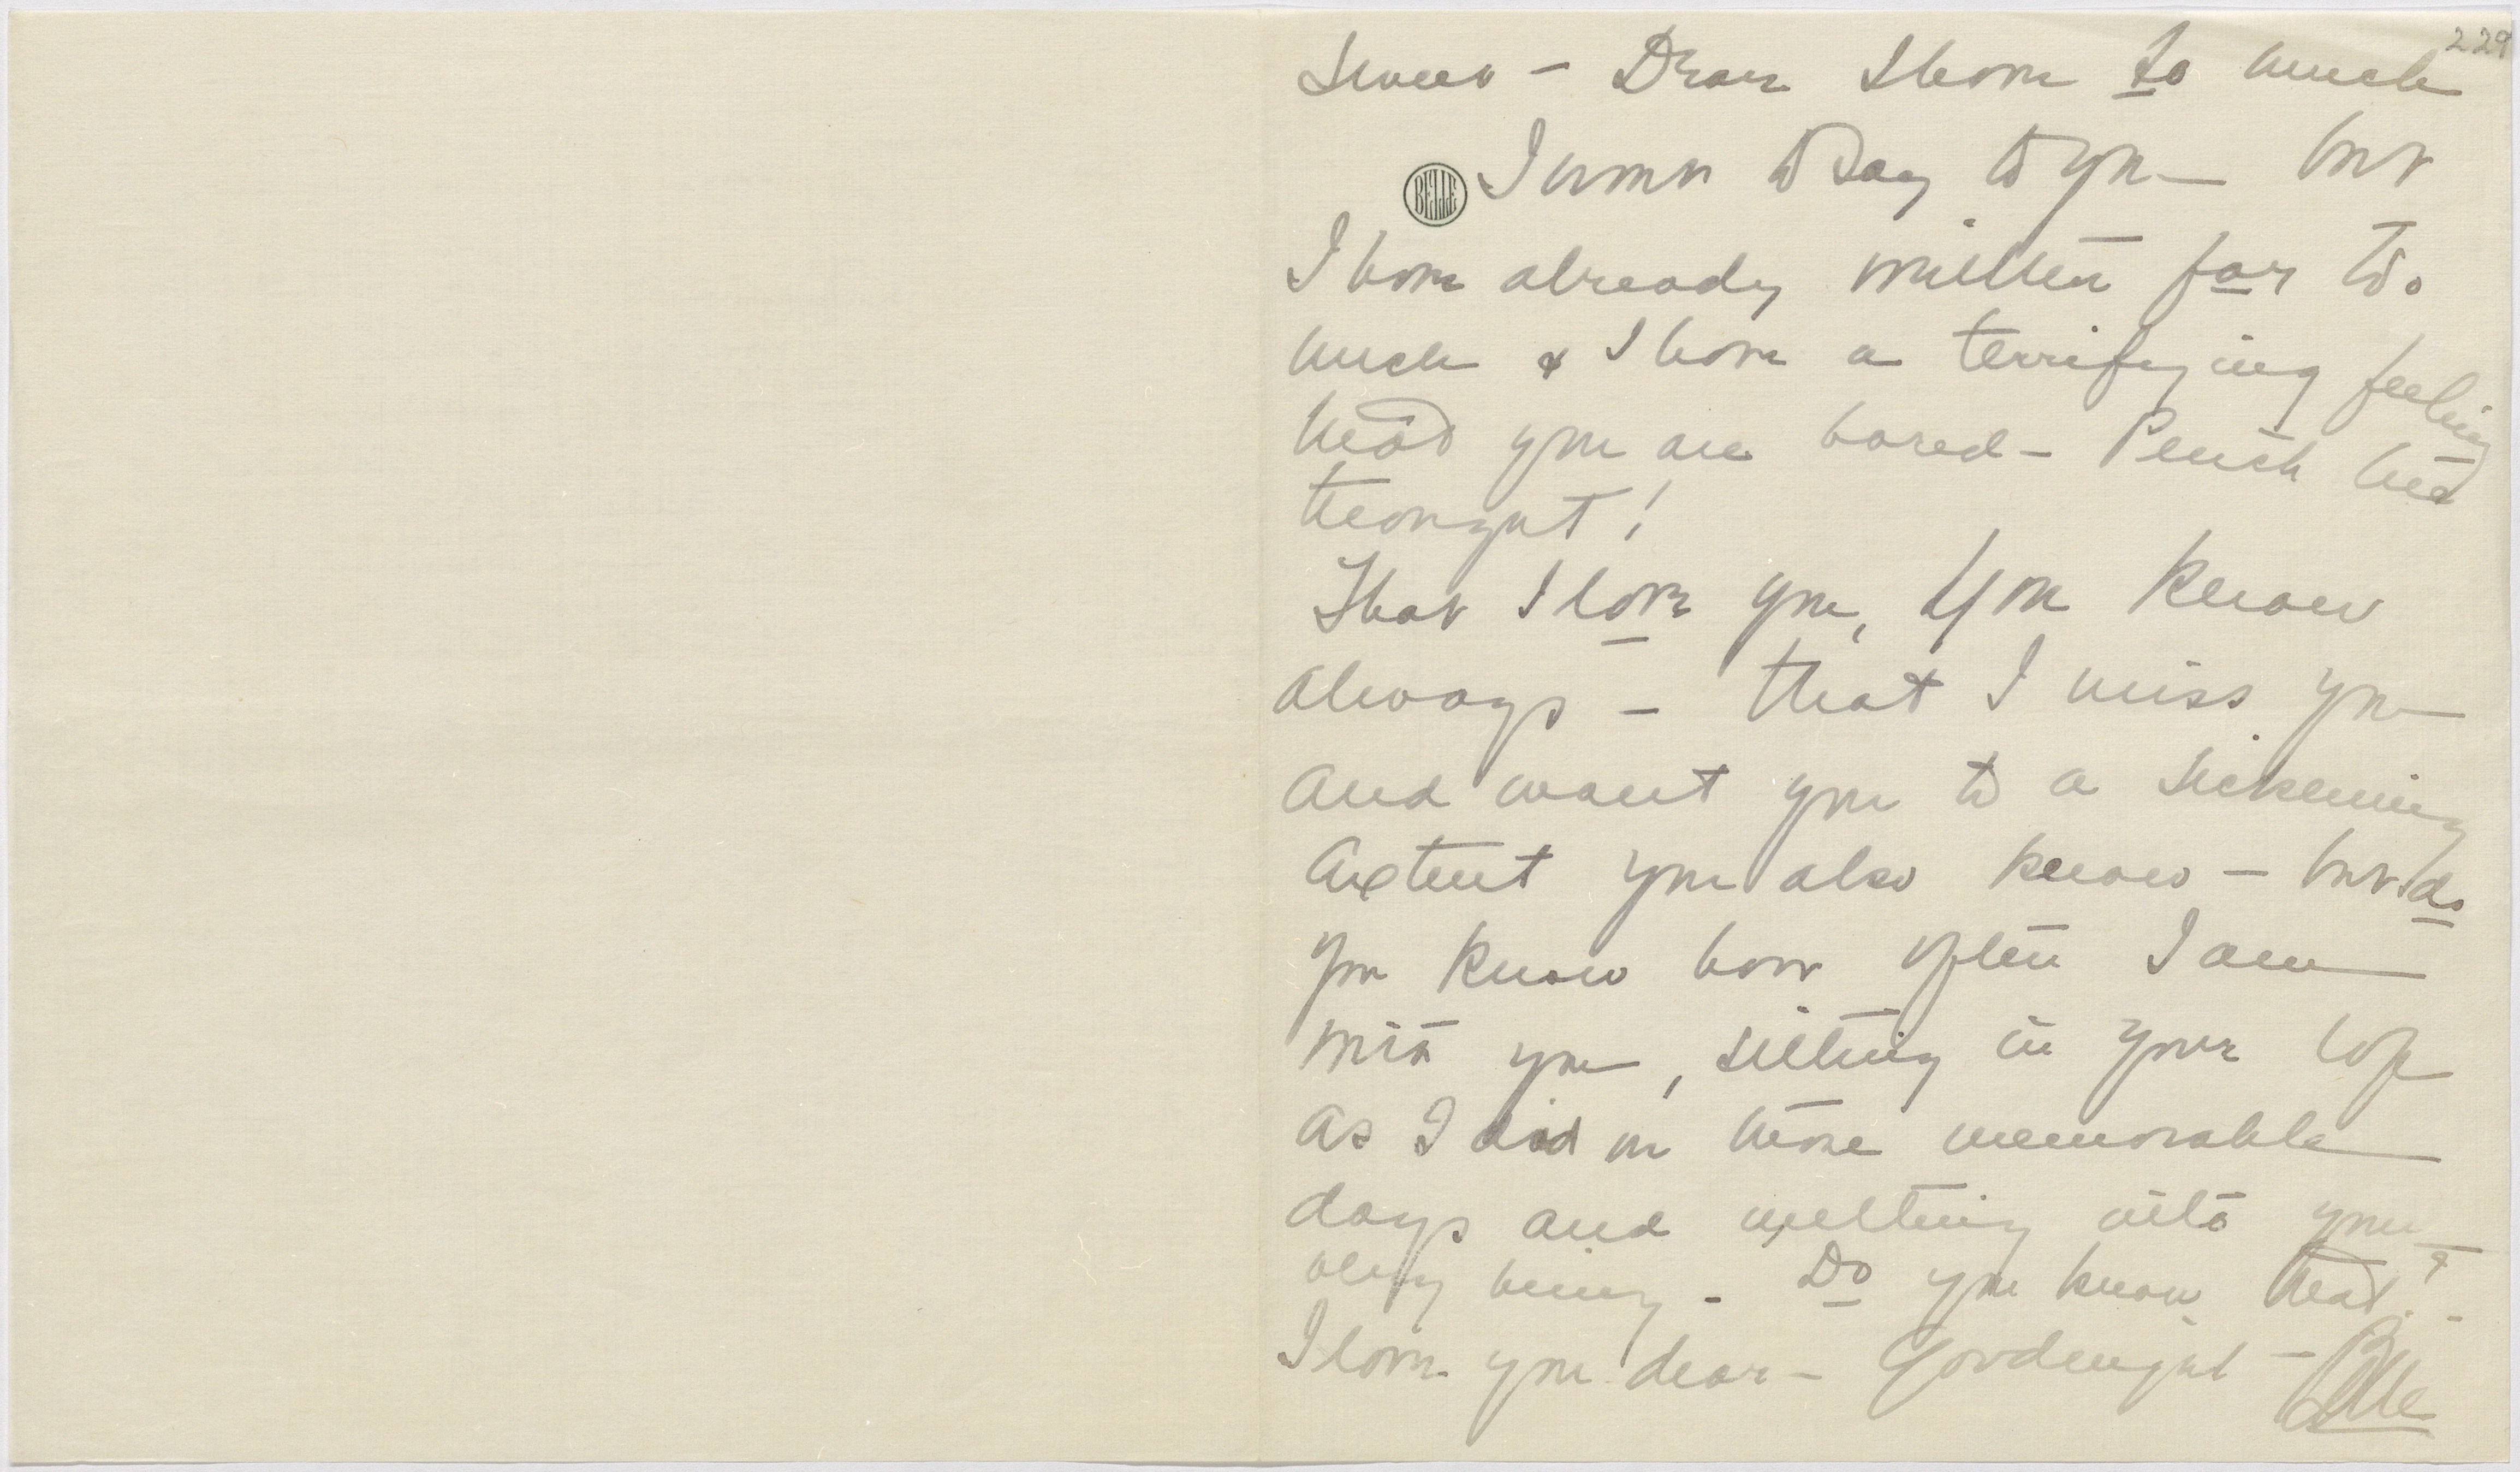 229
Sweet – Dear I have so much
BELLE
I want to say to you – but
I have already written far too
much & I have a terrifying feeling
that you are bored – Perish the
thought!
That I love you, you know
always – that I miss you
and want you to a sickening
extent you also know – but do
you know how often I am
with you, sitting in your lap
as I did in those memorable
days and melting into your
very being – Do you know that?
I love you dear – Goodnight – Belle